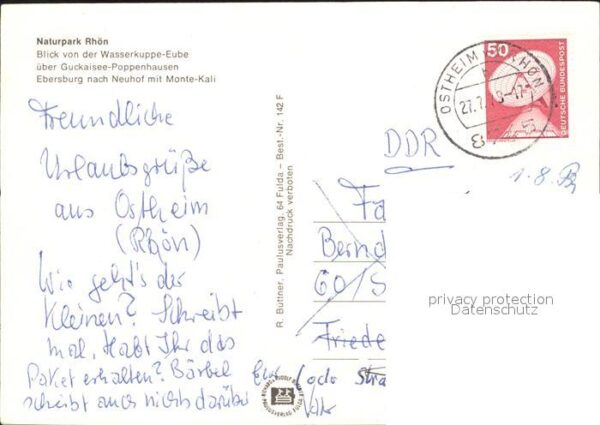 Naturpark Rhön
Blick von der Wasserkuppe-Eube
über Guckaisee-Poppenhausen
Ebersburg nach Neuhof mit Monte-Kali
Freundliche
Urlaubsgrüße
aus Ostheim
(Rhön)
Wie geht's der
Kleinen? Schreibt
mal. Habt Ihr das
Paket erhalten? Bärbel
schreibt auch nichts darüber
R. Büttner, Paulusverlag, 64 Fulda – Best.-Nr. 142 F
Nachdruck verboten
OSTHEIM RHÖN
27.7.
50
DEUTSCHE BUNDESPOST
DDR
1.8.
Fa
Bernd
60/S
Friede
Stra
privacy protection
Datenschutz